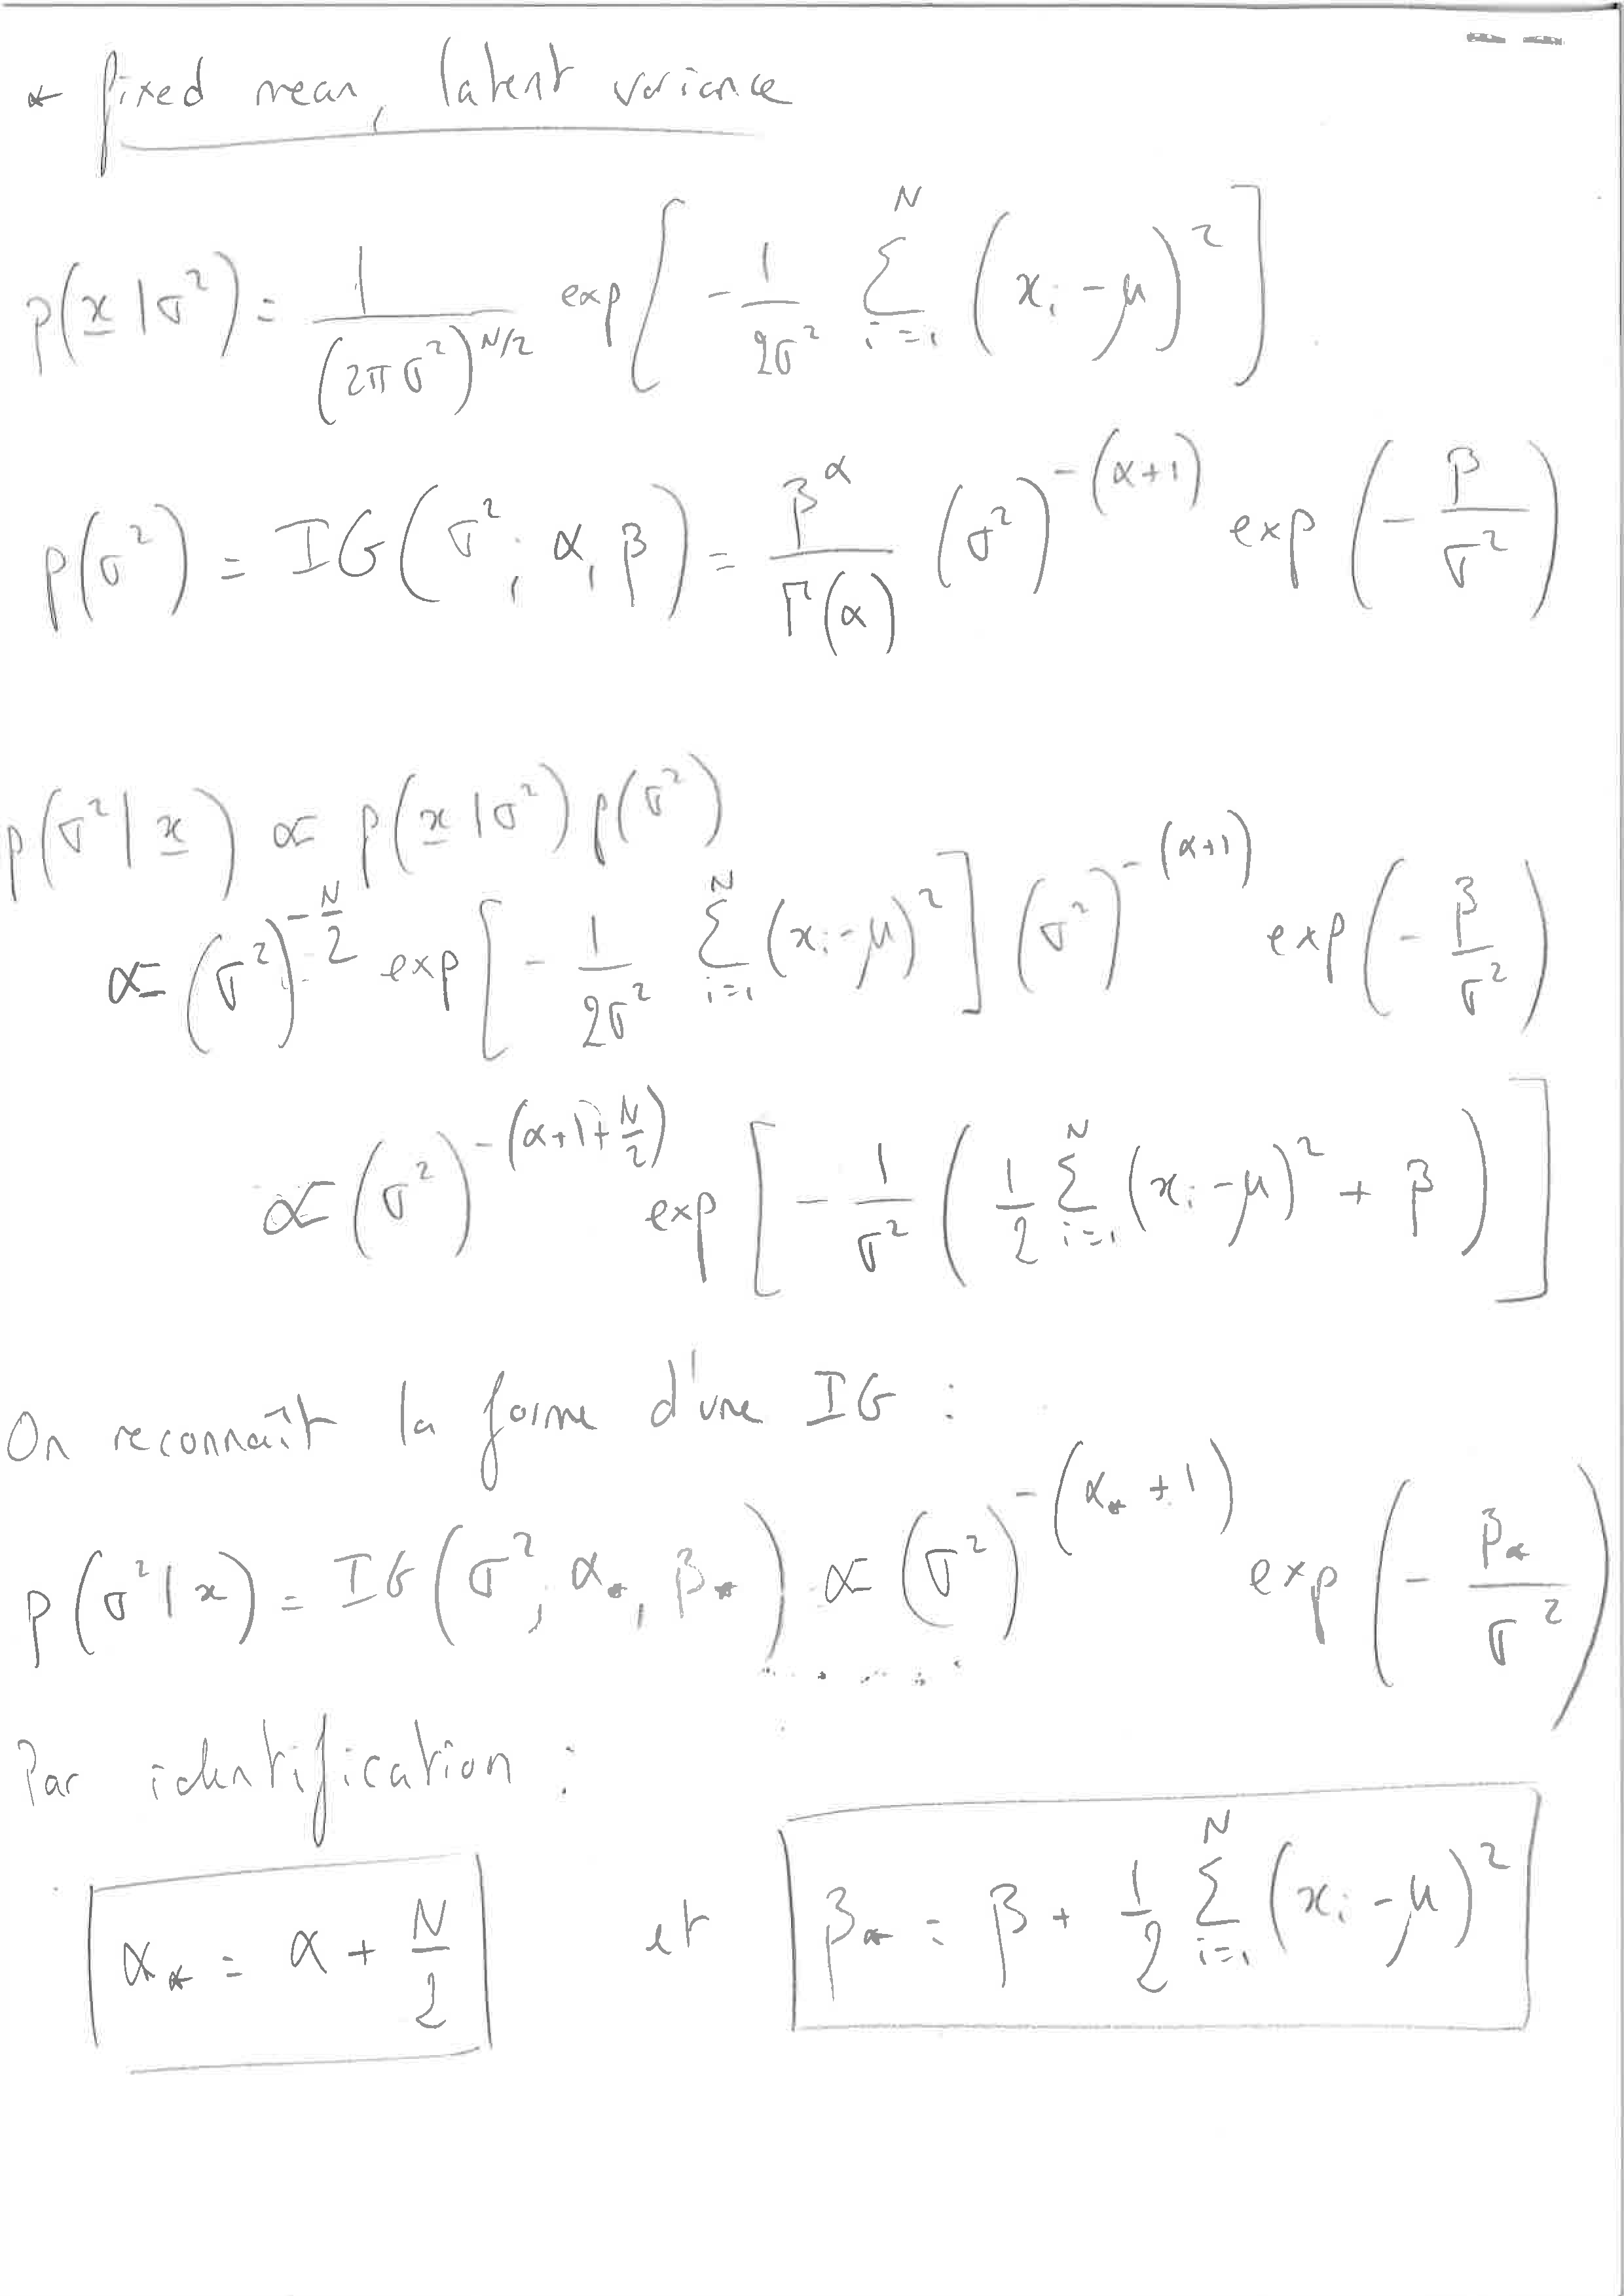 * fixed mean, latent variance
p(x̲ | σ²) = 1 / (2πσ²)^{N/2} exp[ - 1/(2σ²) Σ_{i=1}^{N} (x_i - μ)² ]
p(σ²) = IG(σ²; α, β) = β^α / Γ(α) (σ²)^{-(α+1)} exp( - β/σ² )
p(σ² | x̲) ∝ p(x̲ | σ²) p(σ²)
∝ (σ²)^{-N/2} exp[ - 1/(2σ²) Σ_{i=1}^{N} (x_i - μ)² ] (σ²)^{-(α+1)} exp( - β/σ² )
∝ (σ²)^{-(α+1+N/2)} exp[ - 1/σ² ( 1/2 Σ_{i=1}^{N} (x_i - μ)² + β ) ]
On reconnaît la forme d'une IG :
p(σ² | x) = IG(σ²; α_*, β_*) ∝ (σ²)^{-(α_* + 1)} exp( - β_*/σ² )
Par identification :
α_* = α + N/2 et β_* = β + 1/2 Σ_{i=1}^{N} (x_i - μ)²